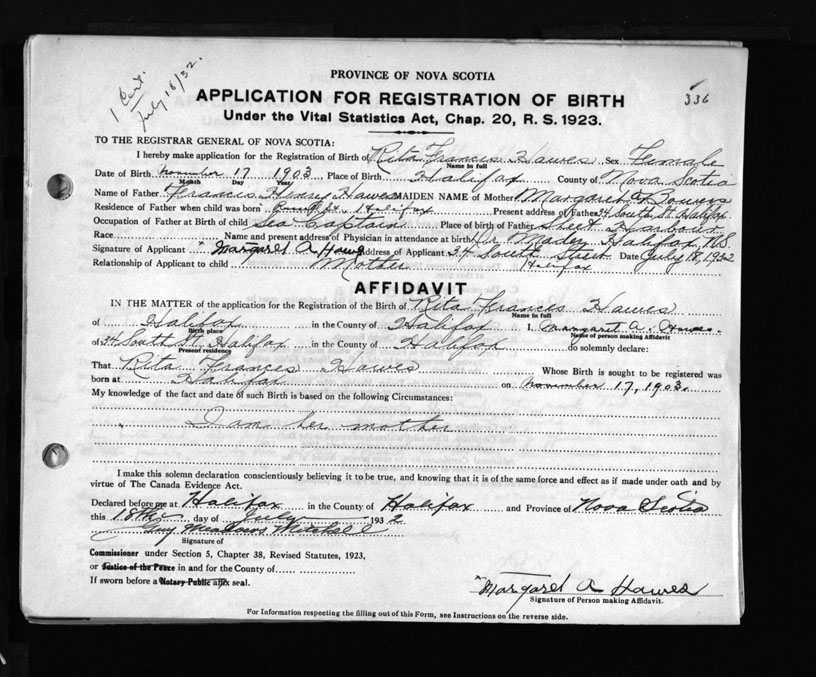 1 Cert.
July 18/32.
336
PROVINCE OF NOVA SCOTIA
APPLICATION FOR REGISTRATION OF BIRTH
Under the Vital Statistics Act, Chap. 20, R. S. 1923.
TO THE REGISTRAR GENERAL OF NOVA SCOTIA:
I hereby make application for the Registration of Birth of Rita Frances Hawes Sex Female
Name in full
Date of Birth November 17 1903 Place of Birth Halifax County of Nova Scotia
Month Day Year
Name of Father Francis Henry Hawes MAIDEN NAME of Mother Margaret A.
Residence of Father when child was born Halifax Present address of Father 34 South St. Halifax
Occupation of Father at Birth of child Sea Captain Place of birth of Father Sheet Harbour
Race Name and present address of Physician in attendance at birth Dr Mader, Halifax, N.S.
Signature of Applicant Margaret A. Hawes Address of Applicant 34 South Street Date July 18, 1932
Relationship of Applicant to child Mother Halifax
AFFIDAVIT
IN THE MATTER of the application for the Registration of the Birth of Rita Frances Hawes
Name in full
of Halifax in the County of Halifax I, Margaret A. Hawes
Birth place Name of person making Affidavit
of 34 South St. Halifax in the County of Halifax do solemnly declare:
Present residence
That Rita Frances Hawes Whose Birth is sought to be registered was
born at Halifax on November 17, 1903.
My knowledge of the fact and date of such Birth is based on the following Circumstances:
I am her mother
I make this solemn declaration conscientiously believing it to be true, and knowing that it is of the same force and effect as if made under oath and by
virtue of The Canada Evidence Act.
Declared before me at Halifax in the County of Halifax and Province of Nova Scotia
this 18th day of July 1932
Guy Mitchell
Signature of
Commissioner under Section 5, Chapter 38, Revised Statutes, 1923,
or Justice of the Peace in and for the County of
If sworn before a Notary Public affix seal.
Margaret A Hawes
Signature of Person making Affidavit.
For Information respecting the filling out of this Form, see Instructions on the reverse side.